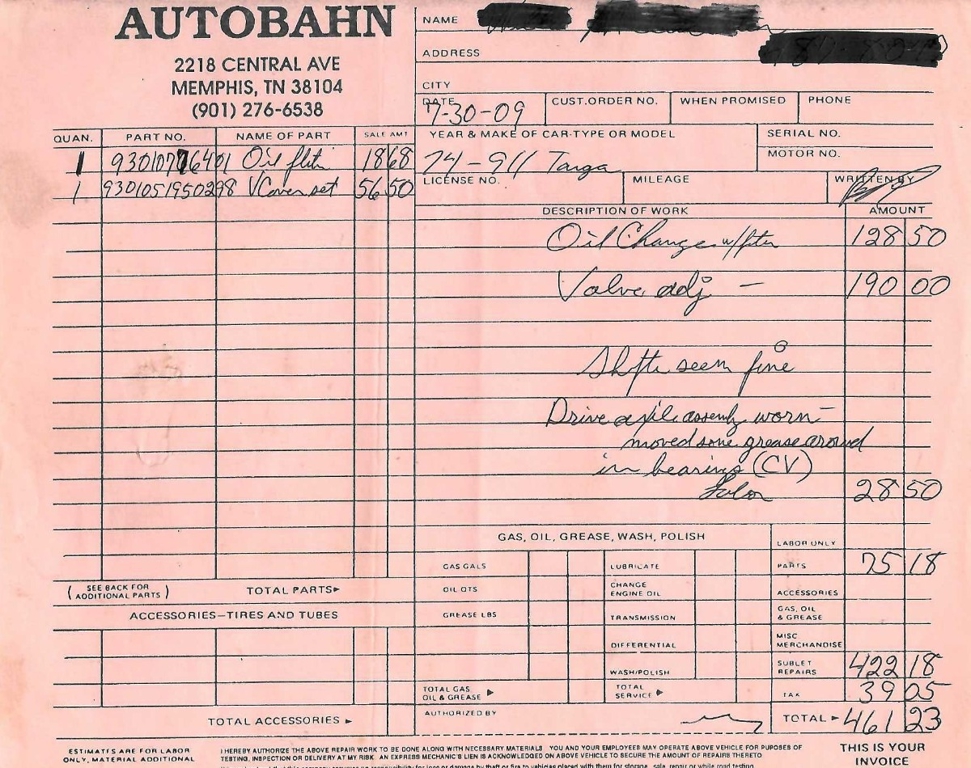 AUTOBAHN
2218 CENTRAL AVE
MEMPHIS, TN 38104
(901) 276-6538
NAME
ADDRESS
CITY
DATE 7-30-09 CUST.ORDER NO. WHEN PROMISED PHONE
QUAN. PART NO. NAME OF PART SALE AMT
YEAR & MAKE OF CAR-TYPE OR MODEL SERIAL NO.
MOTOR NO.
1 Oil 18 68 74-911 Targa
LICENSE NO. MILEAGE WRITTEN BY
1 9301051950298 VCover set 56 50
DESCRIPTION OF WORK AMOUNT
Oil Change 128 50
Valve adj — 190 00
seem fine
Drive worn -
moved some grease around
in bearing (CV)
28 50
GAS, OIL, GREASE, WASH, POLISH LABOR ONLY
GAS GALS LUBRICATE PARTS 75 18
(SEE BACK FOR ADDITIONAL PARTS) TOTAL PARTS
OIL QTS CHANGE ENGINE OIL ACCESSORIES
ACCESSORIES—TIRES AND TUBES
GREASE LBS TRANSMISSION GAS, OIL & GREASE
DIFFERENTIAL MISC. MERCHANDISE
WASH/POLISH SUBLET REPAIRS 422 18
TOTAL GAS OIL & GREASE TOTAL SERVICE TAX 39 05
TOTAL ACCESSORIES AUTHORIZED BY TOTAL 461 23
ESTIMATES ARE FOR LABOR ONLY, MATERIAL ADDITIONAL
I HEREBY AUTHORIZE THE ABOVE REPAIR WORK TO BE DONE ALONG WITH NECESSARY MATERIALS YOU AND YOUR EMPLOYEES MAY OPERATE ABOVE VEHICLE FOR PURPOSES OF
TESTING, INSPECTION OR DELIVERY AT MY RISK. AN EXPRESS MECHANIC'S LIEN IS ACKNOWLEDGED ON ABOVE VEHICLE TO SECURE THE AMOUNT OF REPAIRS THERETO
THIS IS YOUR
INVOICE